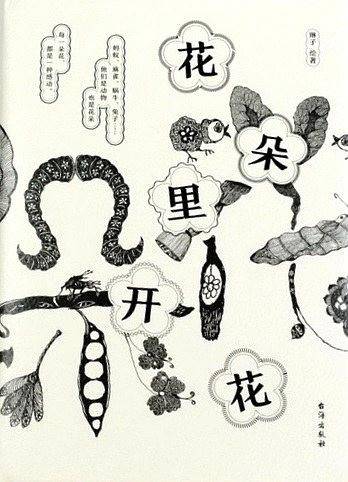 花
朵
里
开
花
琳子 绘著
蚂蚁、麻雀、蜗牛、兔子……
他们是动物
也是花朵
每一朵花，
都是一种感动。
台海出版社